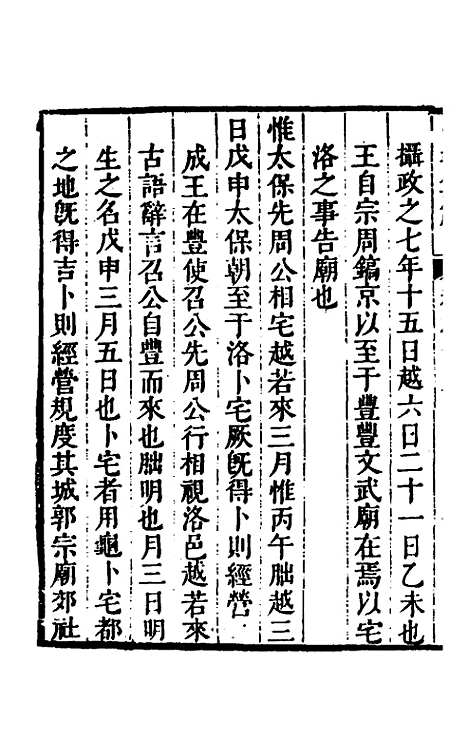 攝政之七年十五日越六日二十一日乙未也
王自宗周鎬京以至于豐豐文武廟在焉以宅
洛之事告廟也
惟太保先周公相宅越若來三月惟丙午朏越三
日戊申太保朝至于洛卜宅厥旣得卜則經營
成王在豐使召公先周公行相視洛邑越若來
古語辭言召公自豐而來也朏明也月三日明
生之名戊申三月五日也卜宅者用龜卜宅都
之地旣得吉卜則經營規度其城郭宗廟郊社